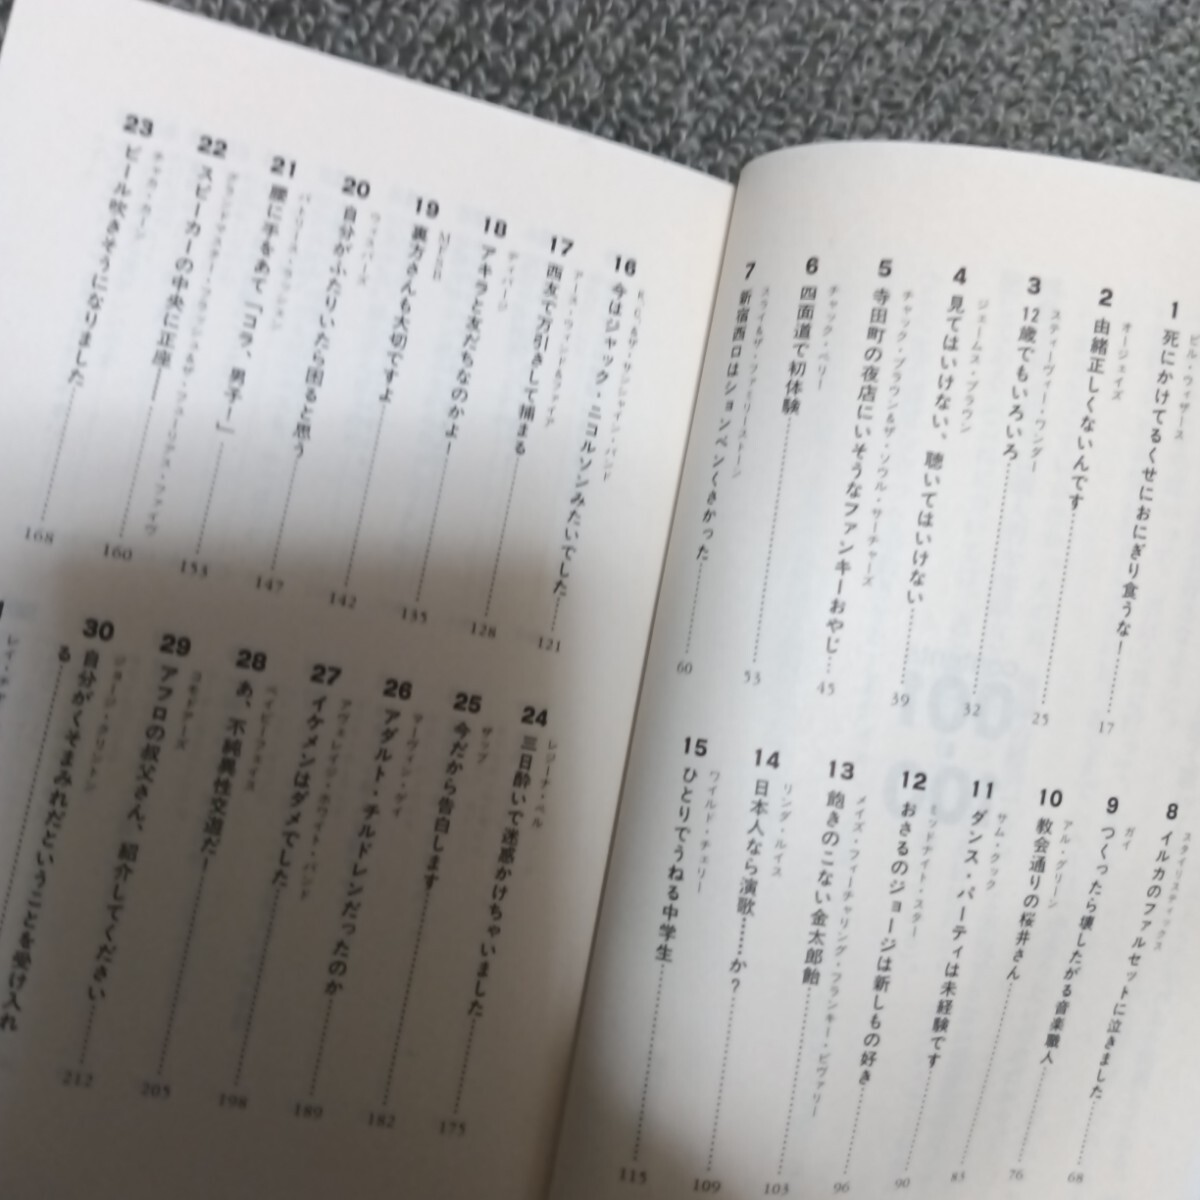 ビル・ウィザース
1 死にかけてるくせにおにぎり食うな！ 17
オージェイズ
2 由緒正しくないんです 25
スティーヴィー・ワンダー
3 12歳でもいろいろ 32
ジェームス・ブラウン
4 見てはいけない、聴いてはいけない 39
チャック・ブラウン&ザ・ソウル・サーチャーズ
5 寺田町の夜店にいそうなファンキーおやじ 45
チャック・ベリー
6 四面道で初体験 53
スライ&ザ・ファミリーストーン
7 新宿西口はションベンくさかった 60
スタイリスティックス
8 イルカのファルセットに泣きました 68
ガイ
9 つくったら壊したがる音楽職人 76
アル・グリーン
10 教会通りの桜井さん 83
サム・クック
11 ダンス・パーティは未経験です 90
ミッドナイト・スター
12 おさるのジョージは新しもの好き 96
メイズ・フィーチャリング・フランキー・ビヴァリー
13 飽きのこない金太郎飴 103
リンダ・ルイス
14 日本人なら演歌……か？ 109
ワイルド・チェリー
15 ひとりでうねる中学生 115
K.C.&ザ・サンシャイン・バンド
16 今はジャック・ニコルソンみたいでした 121
アース・ウィンド&ファイア
17 西友で万引きして捕まる 128
ディバージ
18 アキラと友だちなのかよ！ 135
19 裏方さんも大切ですよ 142
ウィスパーズ
20 自分がふたりいたら困ると思う 147
21 腰に手をあて「コラ、男子！」 153
グランドマスター・フラッシュ&ザ・フューリアス・ファイヴ
22 スピーカーの中央に正座 160
チャカ・カーン
23 ビール吹きそうになりました 168
レジーナ・ベル
24 三日酔いで迷惑かけちゃいました 175
ザップ
25 今だから告白します 182
マーヴィン・ゲイ
26 アダルト・チルドレンだったのか 189
アヴェレイジ・ホワイト・バンド
27 イケメンはダメでした 198
ベイビーフェイス
28 あ、不純異性交遊だ！ 205
コモドアーズ
29 アフロの叔父さん、紹介してください 212
ジョージ・クリントン
30 自分がくそまみれだということを受け入れ
る